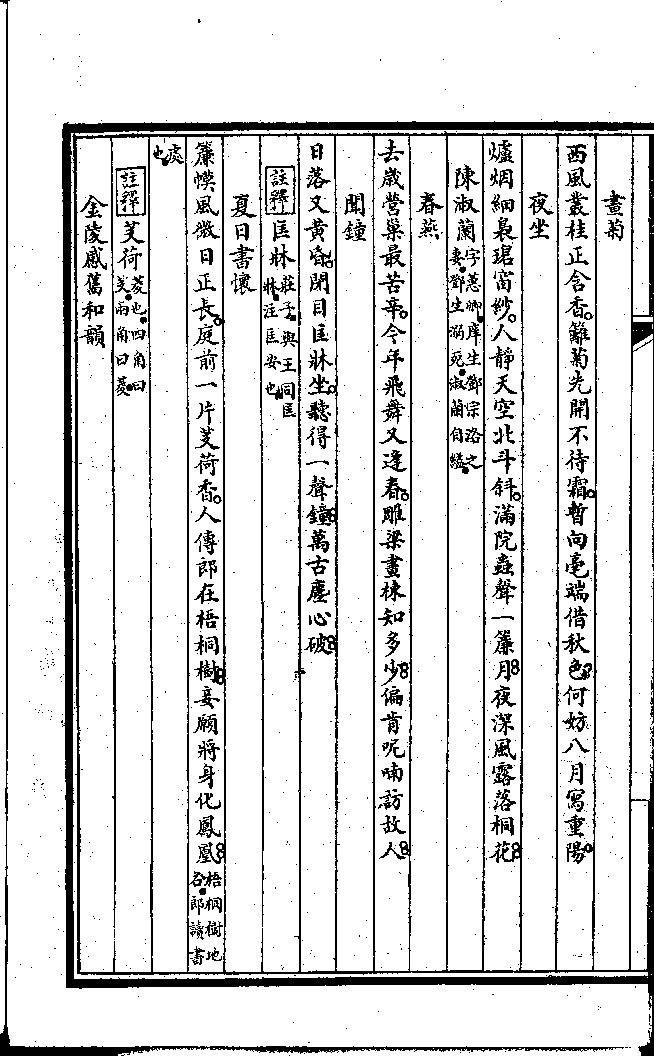 畫菊
西風叢桂正含香籬菊先開不待霜暫向毫端借秋色何妨八月寫重陽
夜坐
爐烟細裊珺窗紗人靜天空北斗斜滿院蟲聲一簾月夜深風露落桐花
陳淑蘭字蕙卿庠生鄧宗洛之妻鄧生溺死淑蘭自縊
春燕
去歲營巢最苦辛今年飛舞又逢春雕梁畫棟知多少偏肯呢喃訪故人
聞鐘
日落又黃昏閉目匡牀坐聽得一聲鐘萬古塵心破
註釋 匡牀莊子與王同匡牀注匡安也
夏日書懷
簾幙風微日正長庭前一片芰荷香人傳郎在梧桐樹妾願將身化鳳凰梧桐樹地名郎讀書
處也
註釋 芰荷菱也四角曰芰兩角曰菱
金陵感舊和韻